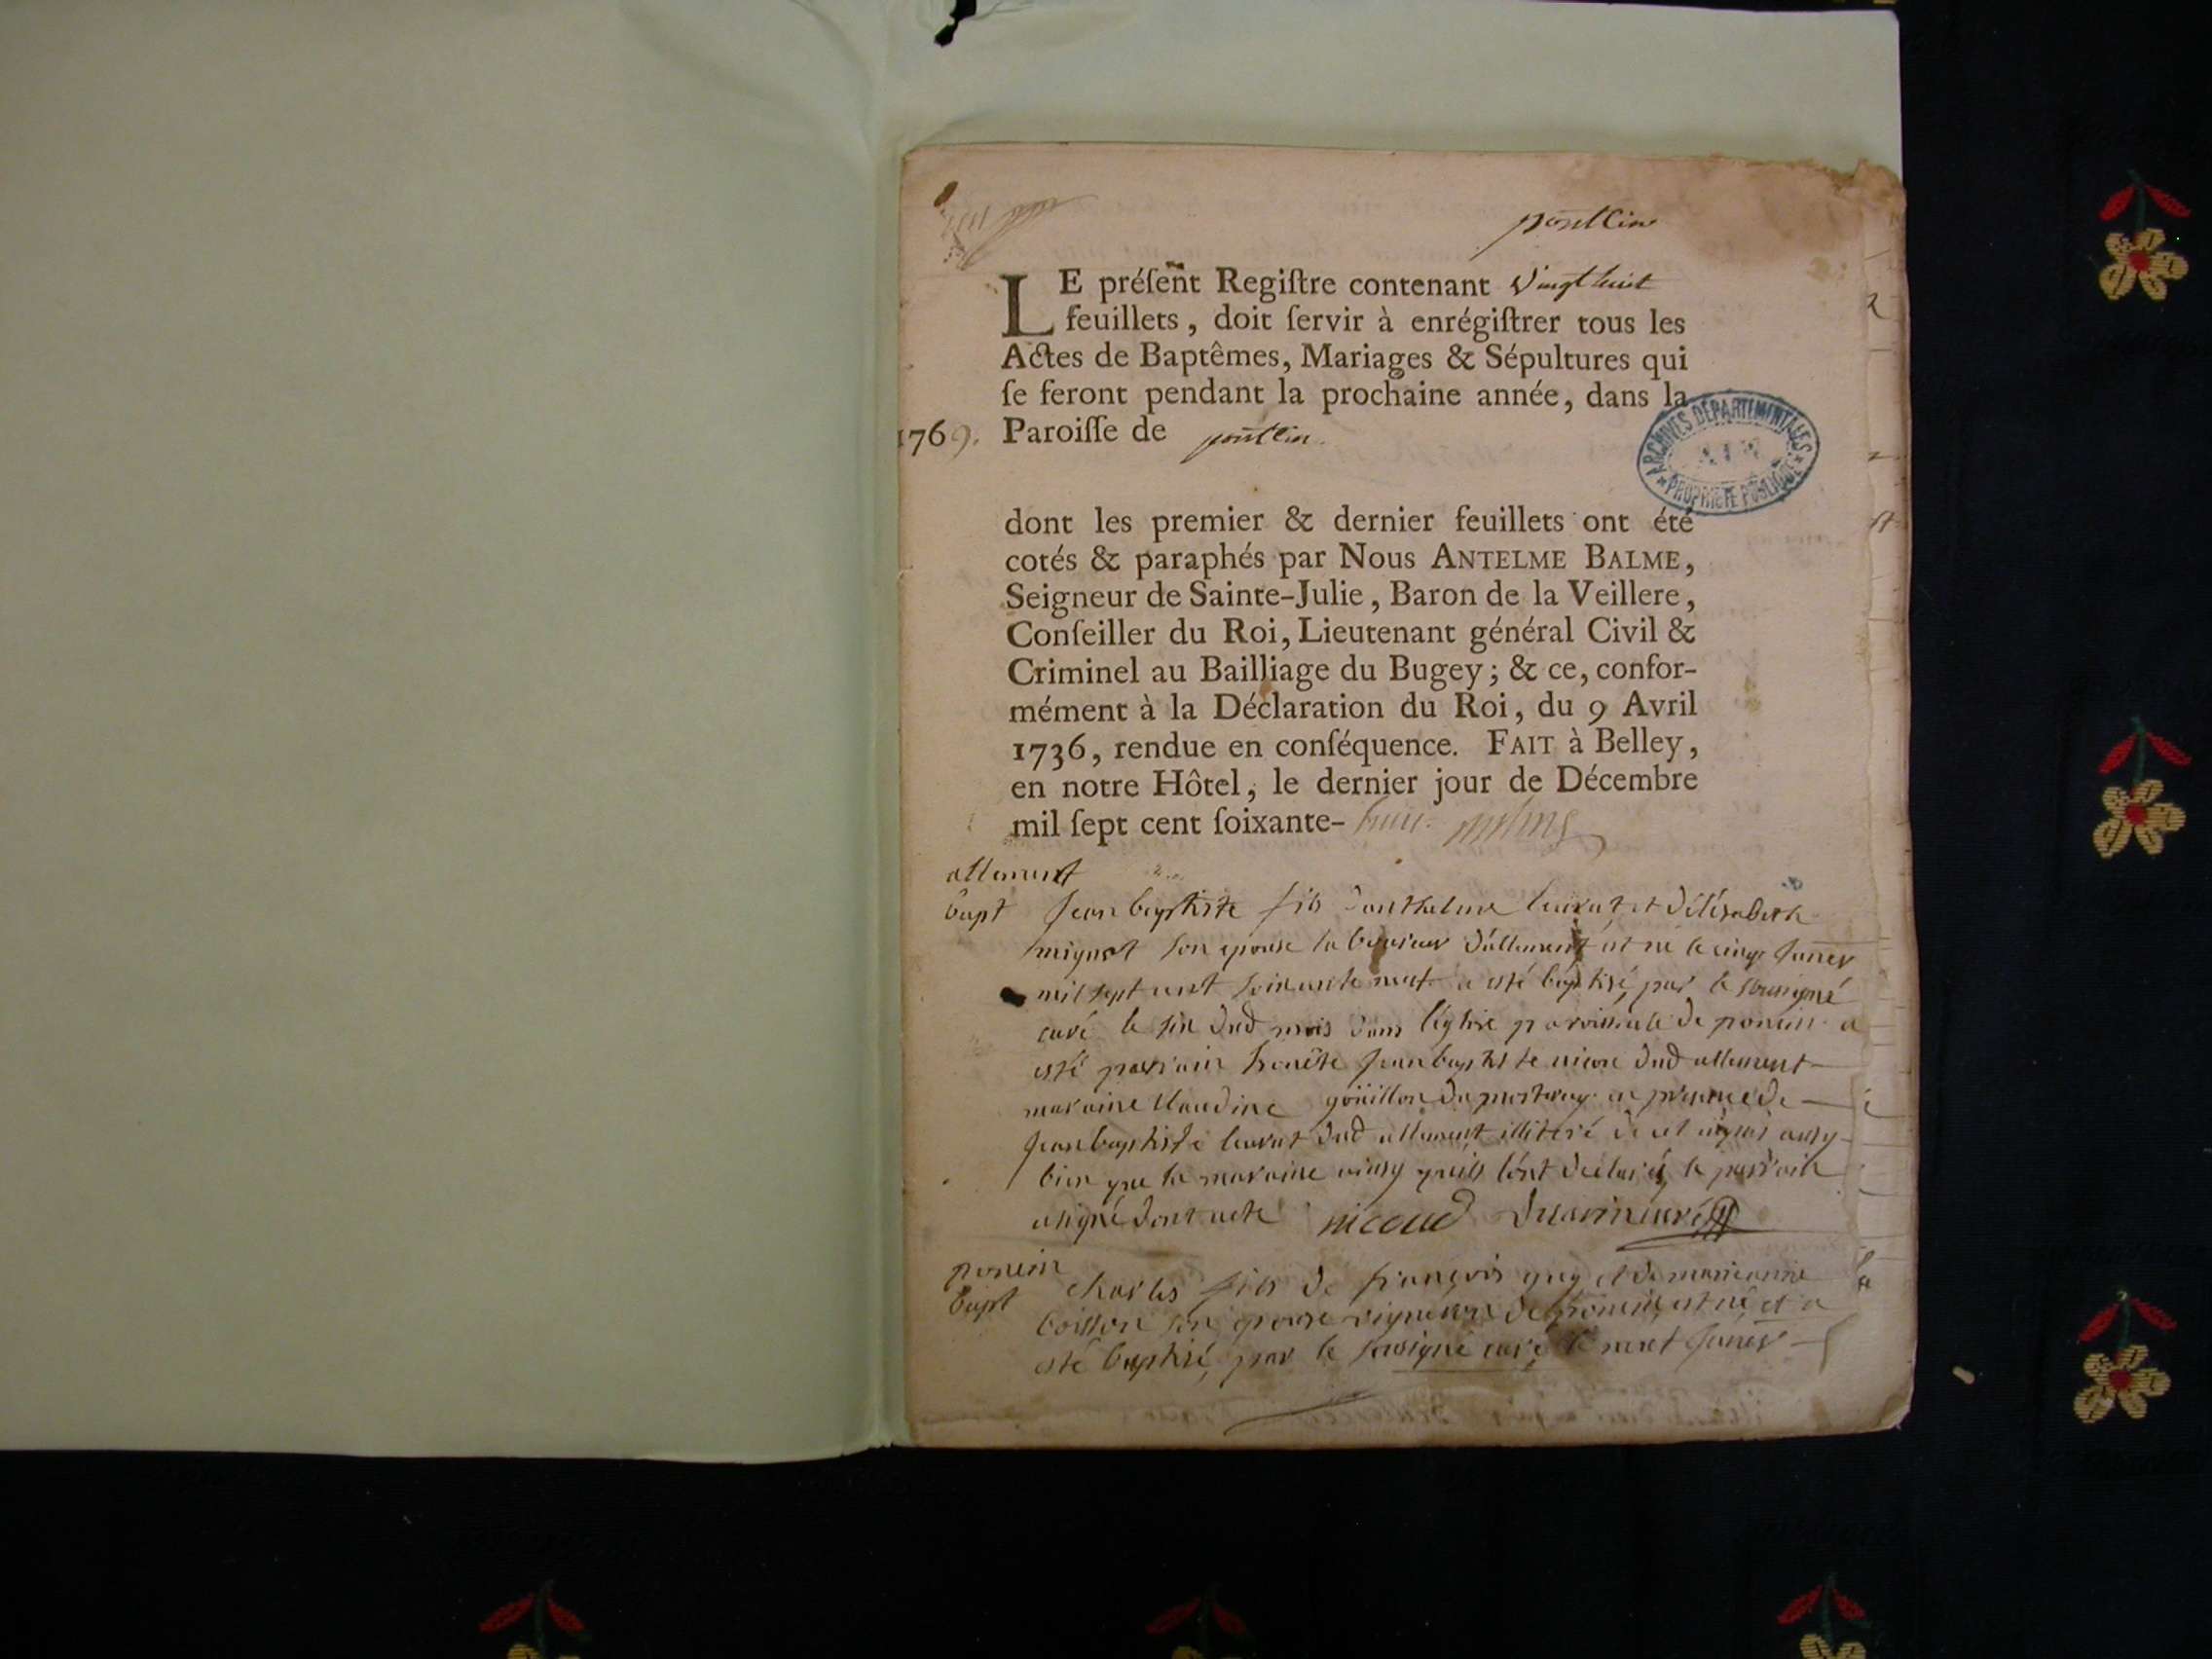 LE préſent Regiſtre contenant Vingt huit
feuillets, doit ſervir à enrégiſtrer tous les
Actes de Baptêmes, Mariages & Sépultures qui
ſe feront pendant la prochaine année, dans la
1769. Paroiſſe de
ARCHIVES DÉPARTEMENTALES
AIN
PROPRIÉTÉ PUBLIQUE
dont les premier & dernier feuillets ont été
cotés & paraphés par Nous ANTELME BALME,
Seigneur de Sainte-Julie, Baron de la Veillere,
Conſeiller du Roi, Lieutenant général Civil &
Criminel au Bailliage du Bugey; & ce, confor-
mément à la Déclaration du Roi, du 9 Avril
1736, rendue en conſéquence. FAIT à Belley,
en notre Hôtel, le dernier jour de Décembre
mil ſept cent ſoixante-huit.
allement
bapt Jean baptiste fils danthelme et délisabeth
mignot son epouse laboureur dallement est né le cinq janer
mil sept cent soixante neuf a esté baptisé, par le soussigné
curé le six dud mois dans léglise paroissiale de poncin a
esté parrain honête jean baptiste dud allement
maraine Claudine goüillon en presence de
jean baptiste dud allement illiteré de ce enquis ausy
bien que la maraine ainsy quils lont declaré, le parrain
a signé dont acte nicoud curé
poncin
bapt charles fils de françois guy et de marianne
boisson son epouse vigneron de poncin est né et a
esté baptisé, par le sousigné curé le neuf janer